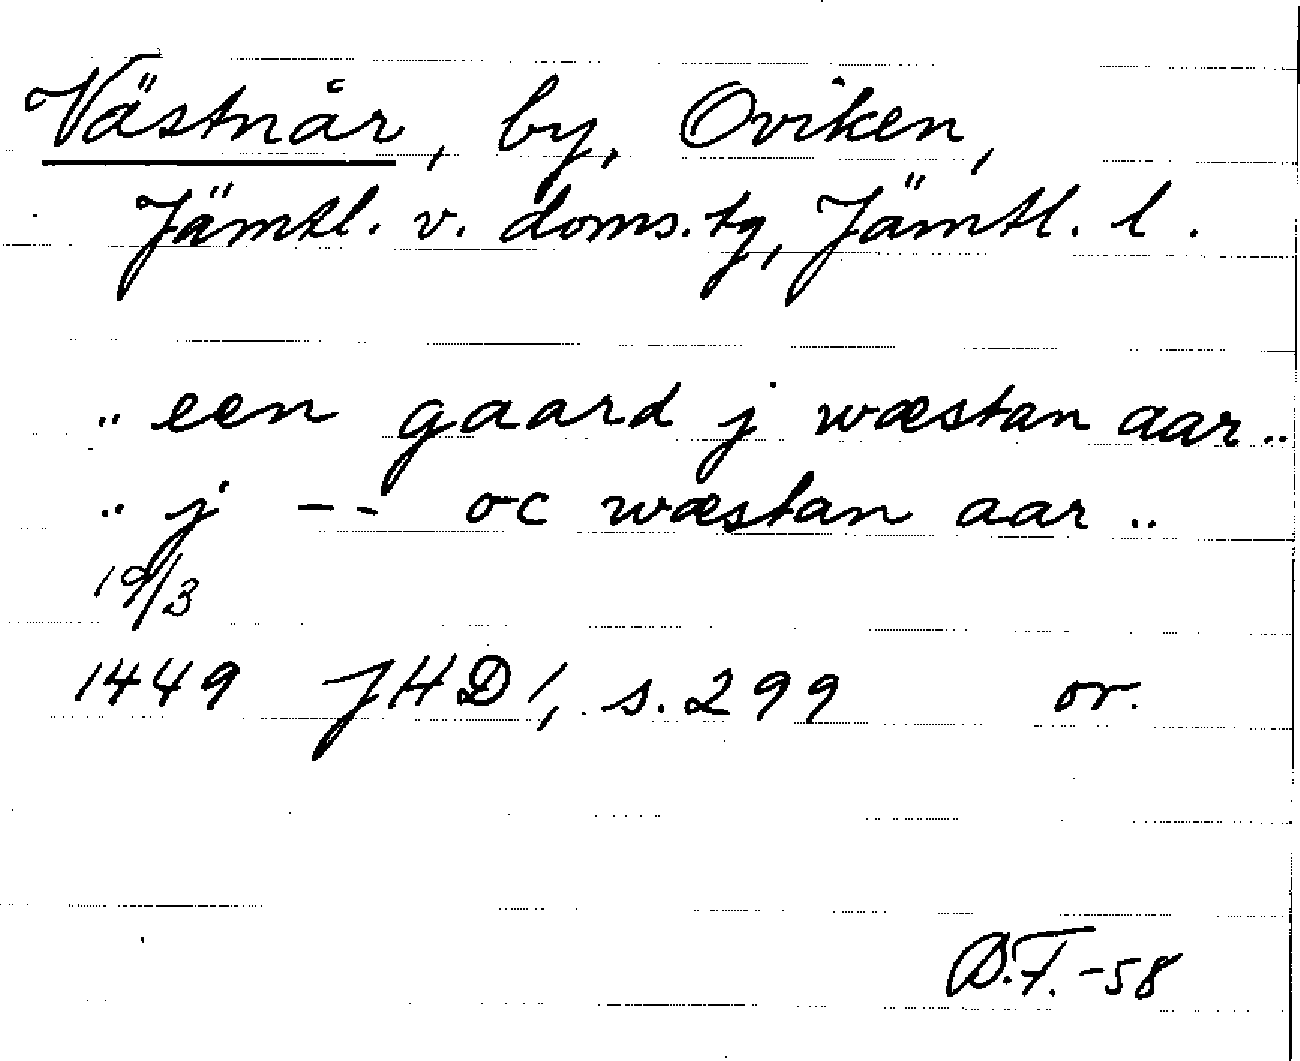 Västnår, by, Oviken,
Jämtl. v. doms. tg, Jämtl. l.
.. een gaard j wæstan aar ..
.. j -- oc wæstan aar ..
19/3
1449 JHD 1, s. 299 or.
D.F. -58